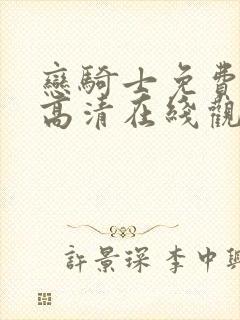 戀騎士免費
高清在綫觀
許景琛 李中興